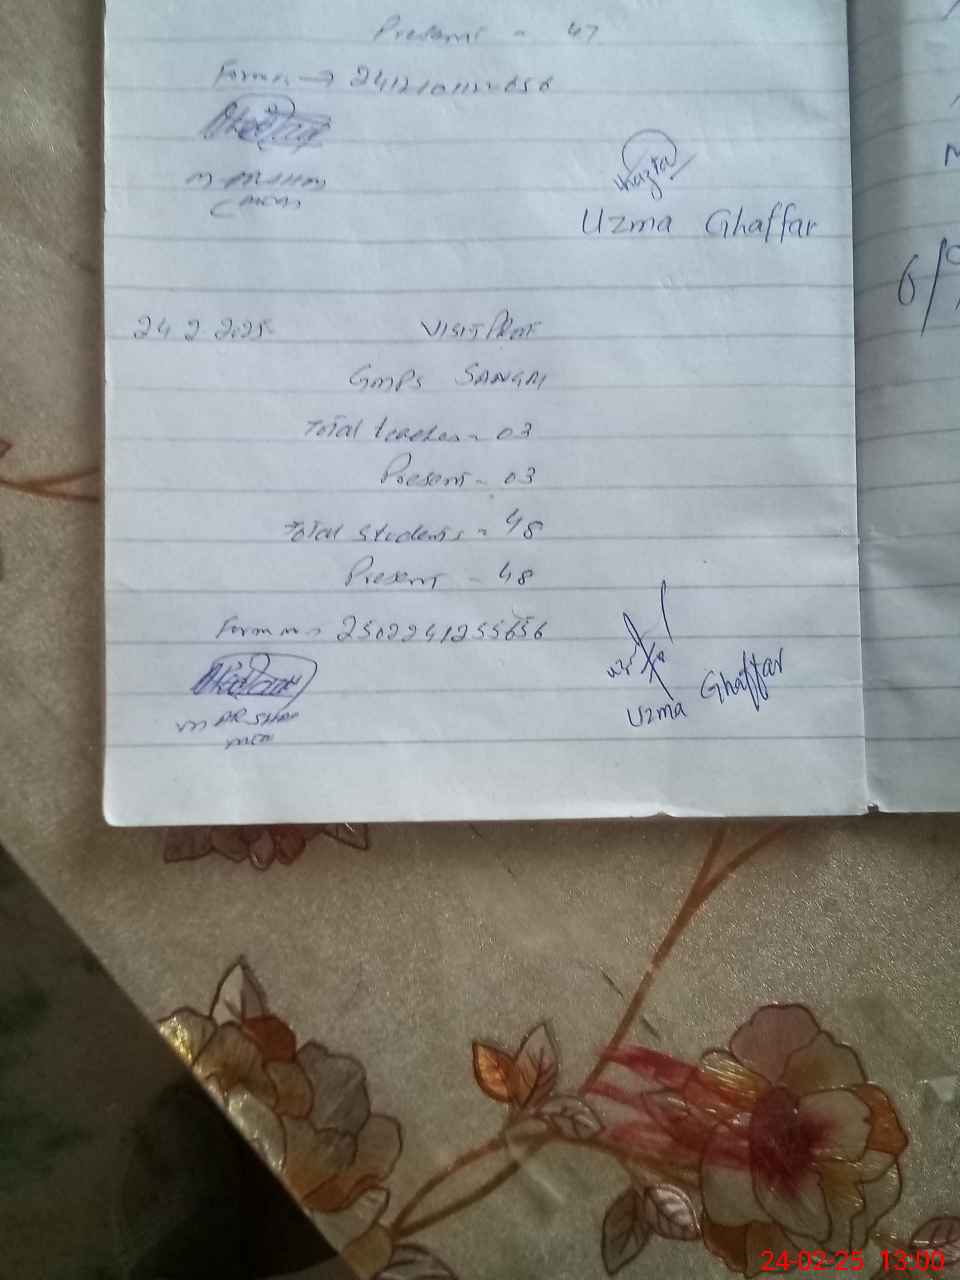 Present - 47
Form n → 2412101122656
M. ARSHAD
(MEA)
Uzma Ghaffar
24 2 2025 VISIT Prof
GMPS SANGAI
Total teacher - 03
Present - 03
Total Students - 48
Present - 48
Form n → 2502241255656
Uzma Ghaffar
M ARSHAD
MEA
6/
24-02-25 13:00